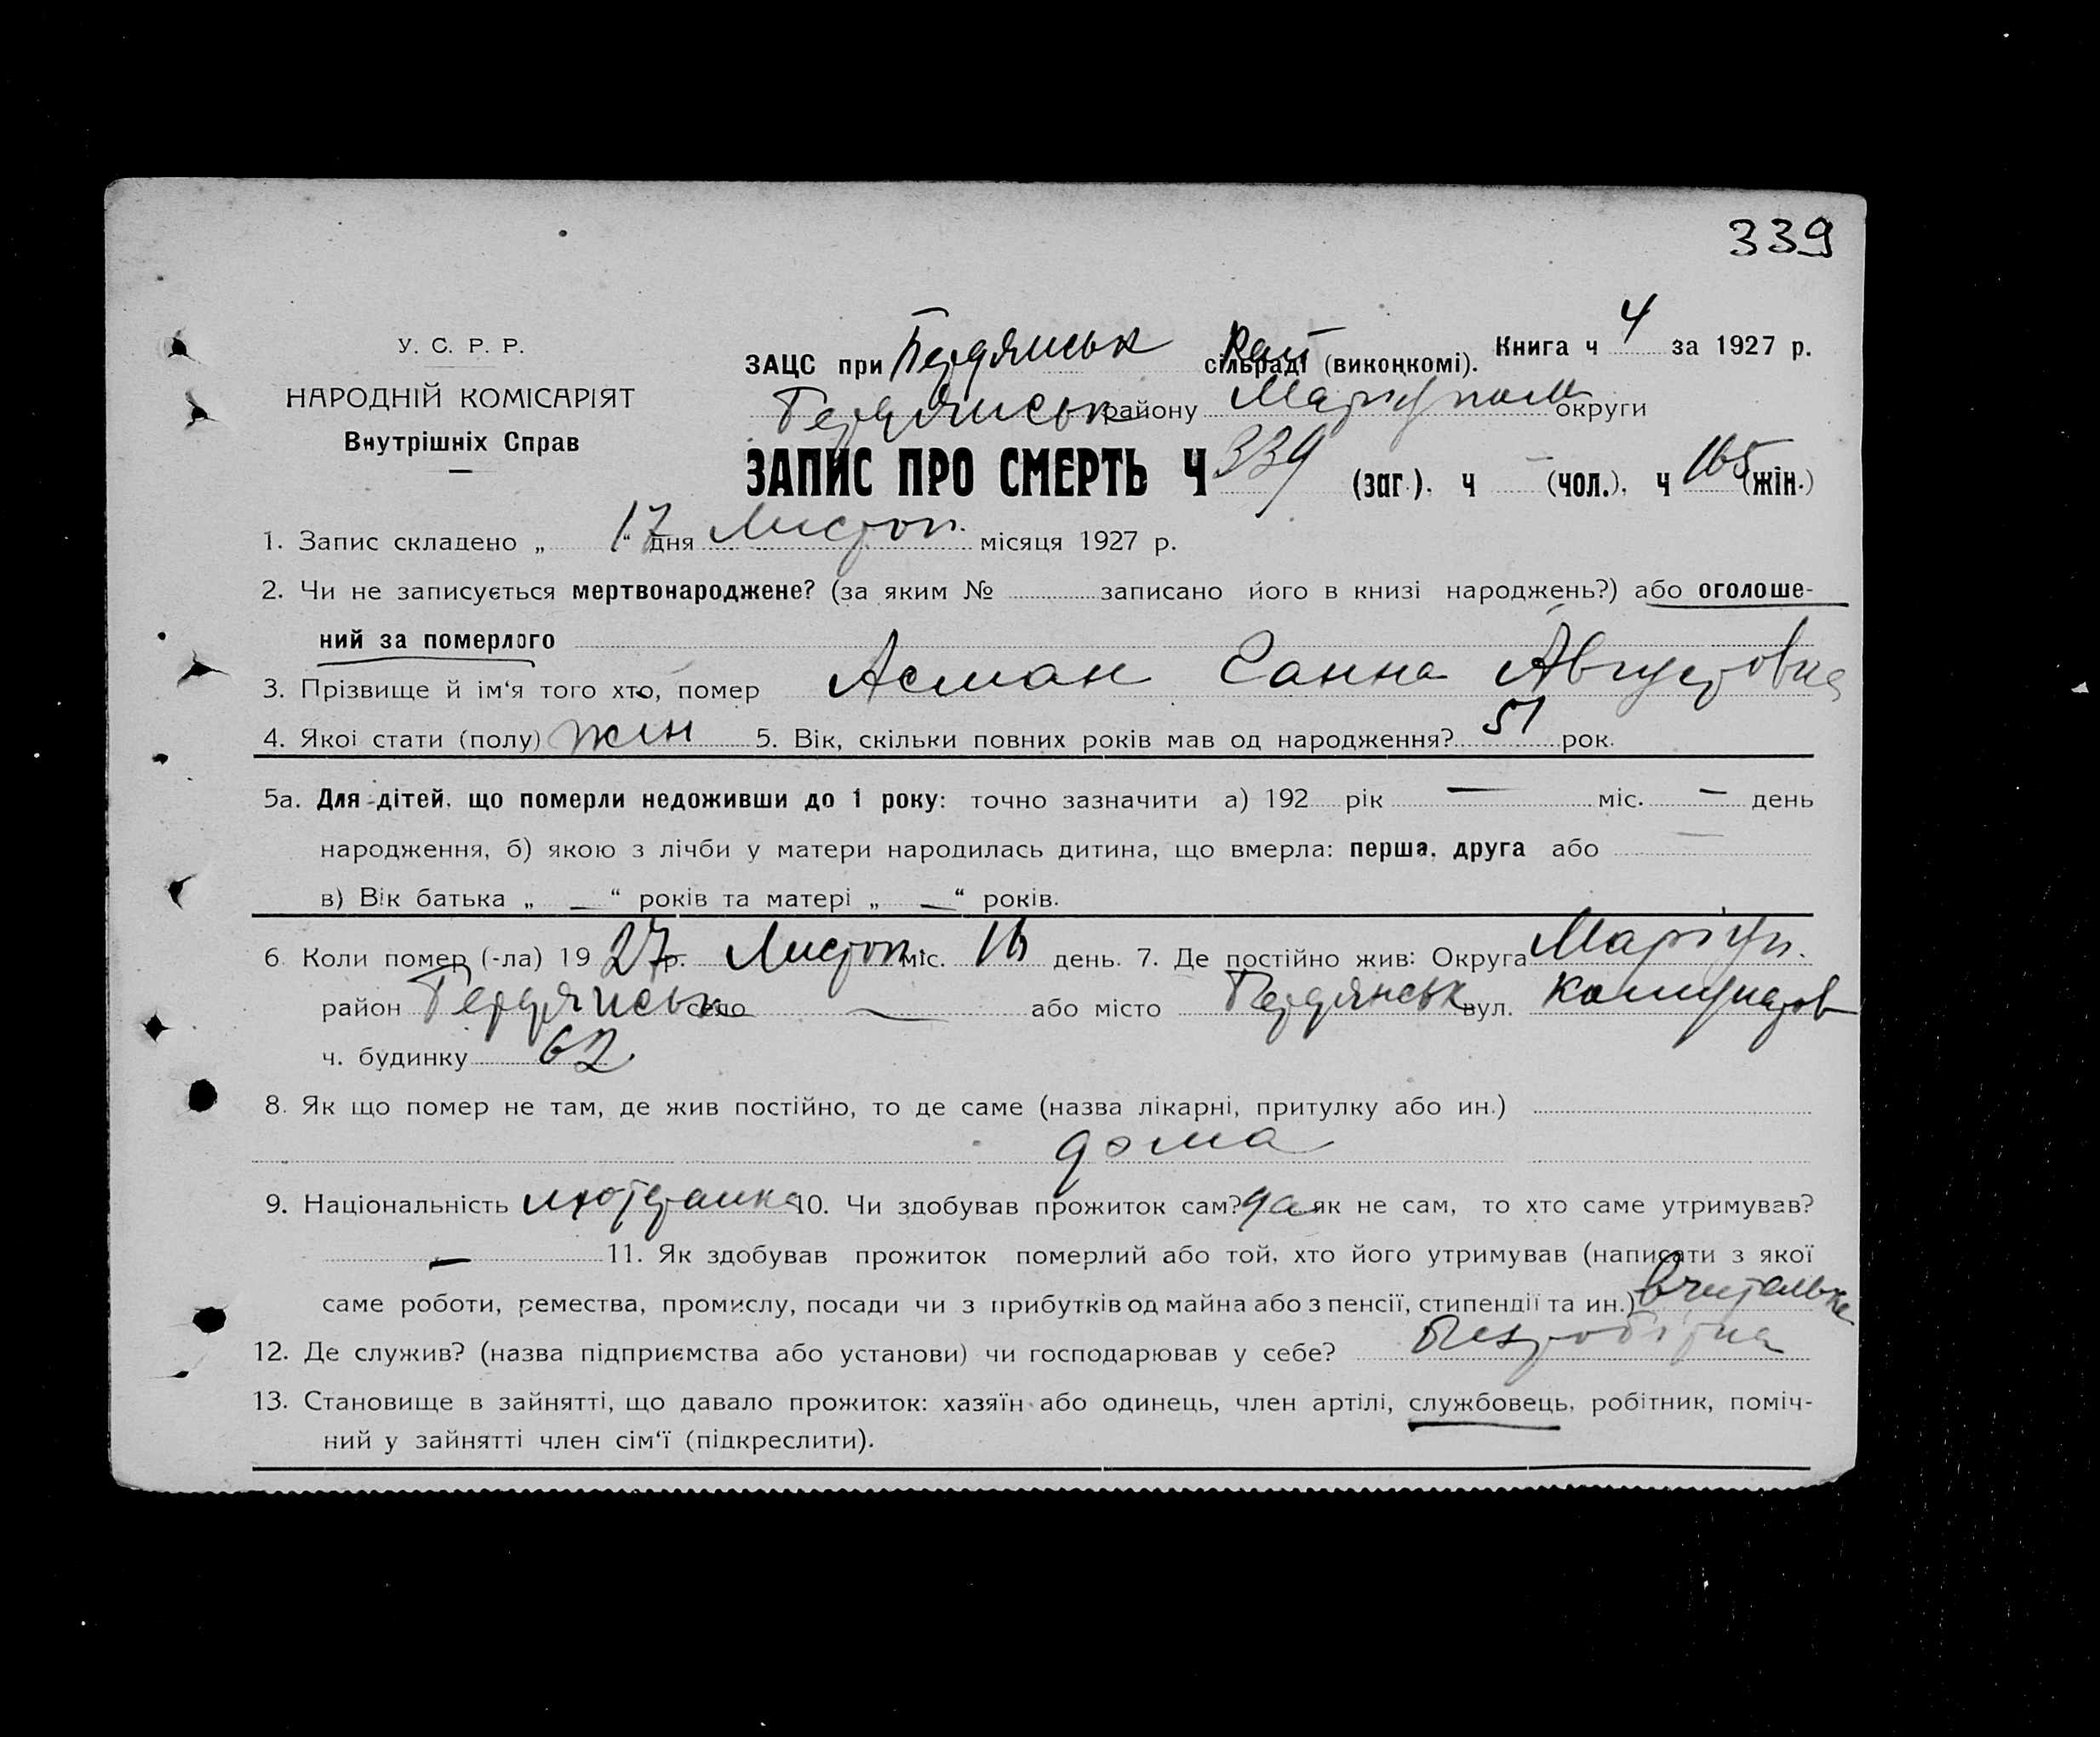 339
У. С. Р. Р.
НАРОДНІЙ КОМІСАРІЯТ
Внутрішніх Справ
ЗАЦС при Бердянськ Рай сільраді (виконкомі). Книга ч 4 за 1927 р.
Бердянськ району Маріупол округи
ЗАПИС ПРО СМЕРТЬ Ч 339 (заг.). ч — (чол.). ч 165 (жін.)
1. Запис складено „ 17 “ дня Листоп. місяця 1927 р.
2. Чи не записується мертвонароджене? (за яким № записано його в книзі народжень?) або оголоше-
ний за померлого
3. Прізвище й ім‘я того хто, помер Асман Санна Августовна
4. Якоі стати (полу) жін 5. Вік, скільки повних років мав од народження? 51 рок.
5а. Для дітей, що померли недоживши до 1 року: точно зазначити а) 192 рік — міс. — день
народження, б) якою з лічби у матери народилась дитина, що вмерла: перша, друга або —
в) Вік батька „ — “ років та матері „ — “ років.
6. Коли помер (-ла) 19 27 р. Листоп. міс. 16 день. 7. Де постійно жив: Округа Маріуп.
район Бердянськ село — або місто Бердянськ вул. Комунаров
ч. будинку 62
8. Як що помер не там, де жив постійно, то де саме (назва лікарні, притулку або ин.)
дома
9. Національність лютеранка 10. Чи здобував прожиток сам? да як не сам, то хто саме утримував?
— 11. Як здобував прожиток померлий або той, хто його утримував (написати з якої
саме роботи, ремества, промислу, посади чи з прибутків од майна або з пенсії, стипендії та ин.) Вчителька
12. Де служив? (назва підприємства або установи) чи господарював у себе? безробітна
13. Становище в зайнятті, що давало прожиток: хазяїн або одинець, член артілі, службовець, робітник, поміч-
ний у зайнятті член сім‘ї (підкреслити).